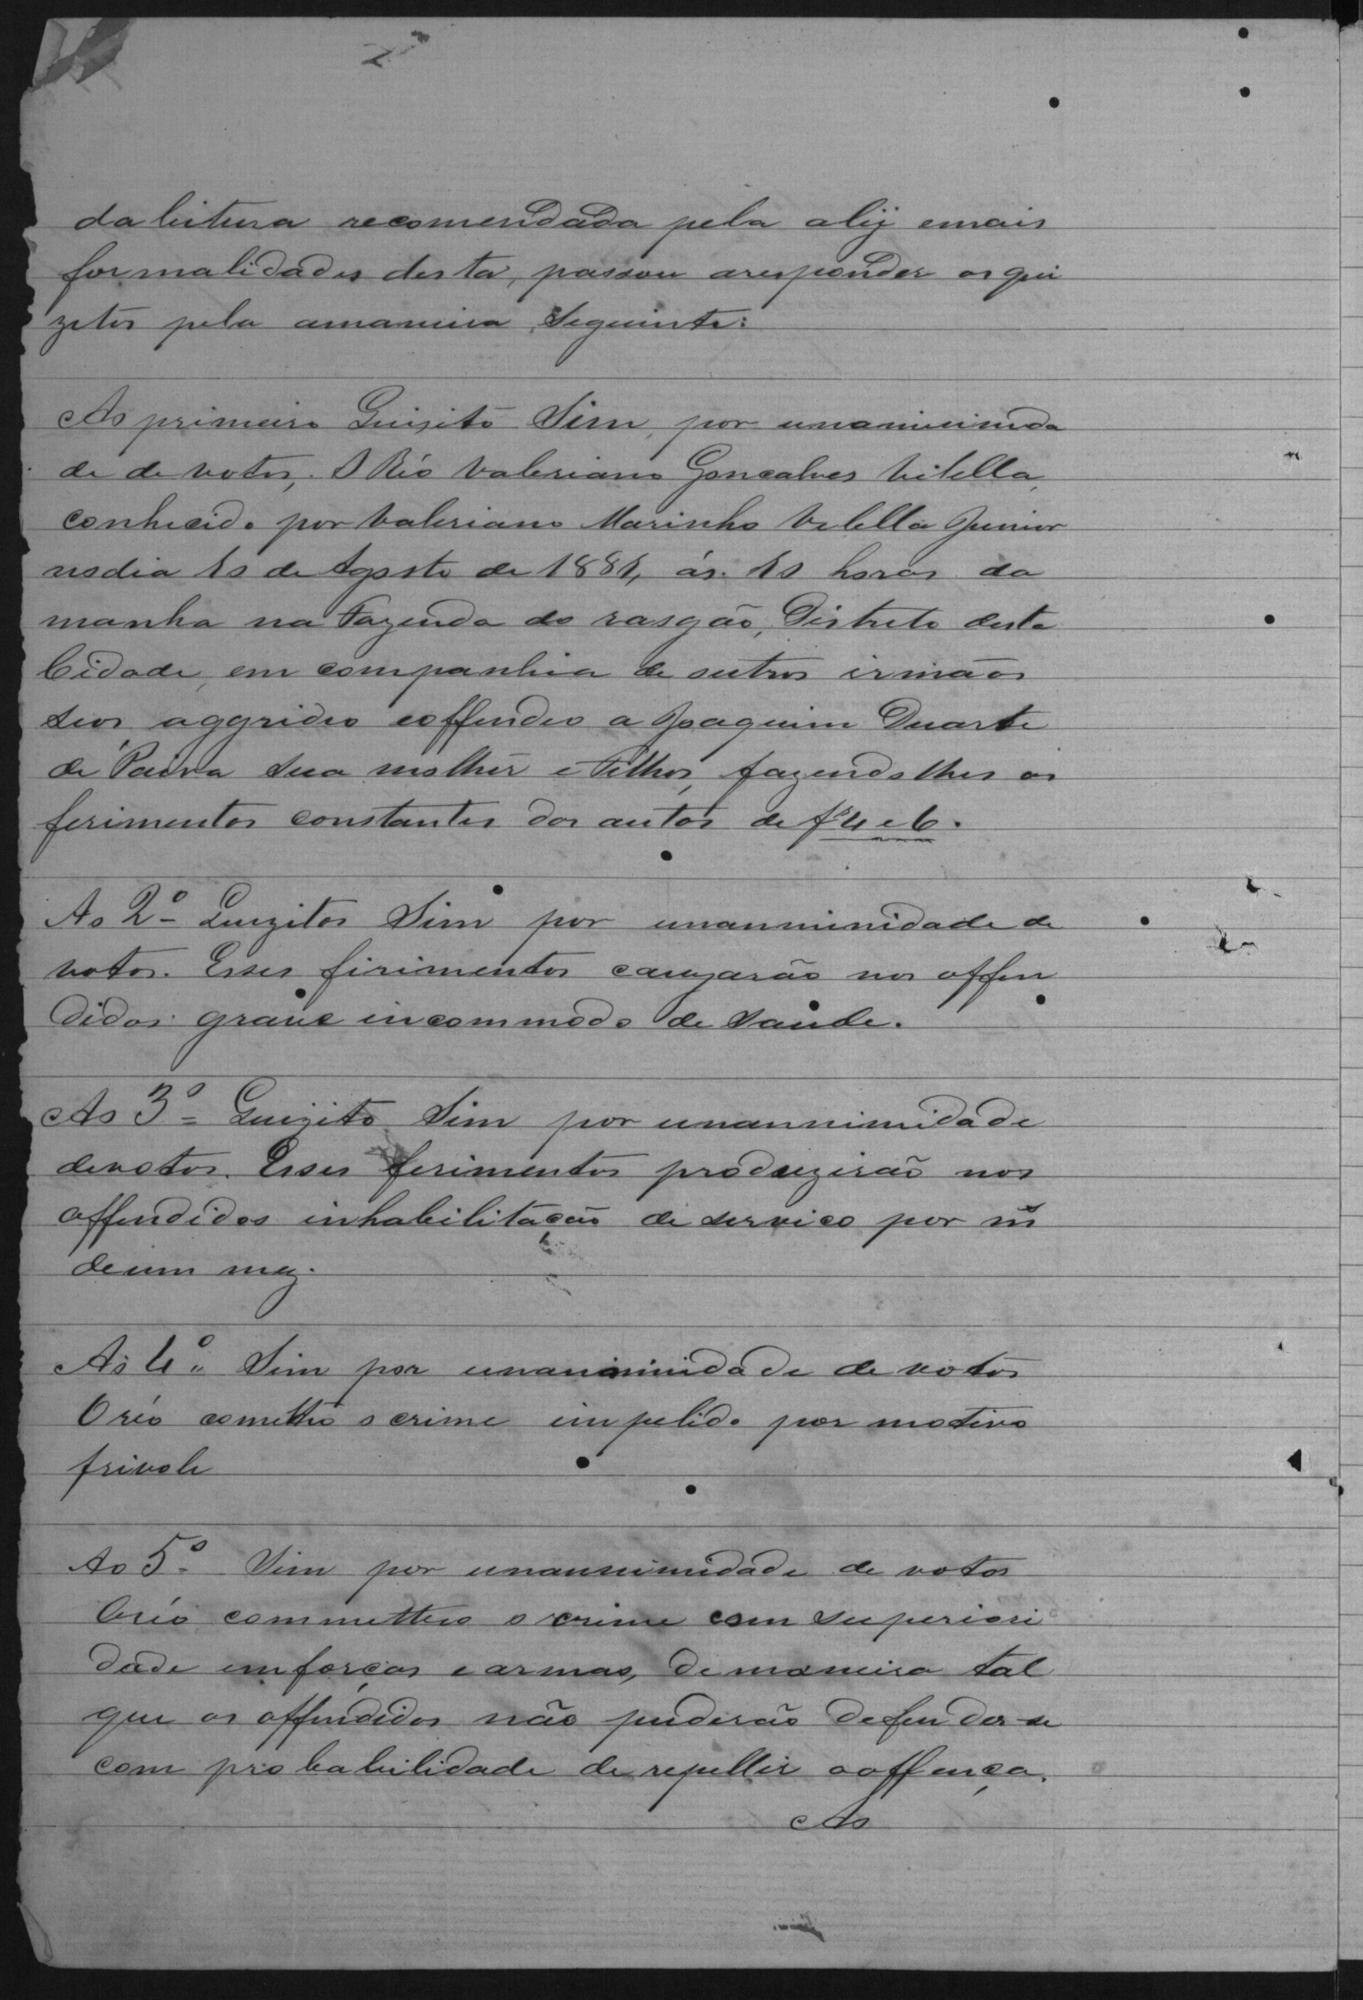 da leitura recomendada pela alij emais
formalidades desta, passou aresponder os qui
zitos pela amaneira seguinte:
Ao primeiro Quizito Sim, por unanimida
de de votos, O Réo Valeriano Goncalves Vilella,
conhecido por Valeriano Marinho Vilella Junior
nodia 10 de Agosto de 1881, ás 10 horas da
manha na Fazenda do rasgão, Districto desta
Cidade, em companhia de outros irmãos
seos aggrideo eoffendeo a Joaquim Duarte
de Paiva sua molher e Filhos, fazendolhes os
ferimentos constantes dos autos de fs 4 e 6.
Ao 2º Quizitos Sim por unanimidade de
votos. Esses firimentos cauzarão nos offen
didos grave incommodo de Saude.
Ao 3º Quizito Sim por unannimidade
devotos. Esses ferimentos produzirão nos
offendidos inhabilitacão de servico por
deum mez.
Ao 4º Sim por unanimidade de votos
Oréo cometteo o crime impelido por motivo
frivolo
Ao 5º Sim por unannimidade de votos
Oréo commetteo o crime com superiori
dade emforças earmas, demaneira tal
que os offendidos não puderão defender-se
com probabilidade derepellir aoffença.
Ao